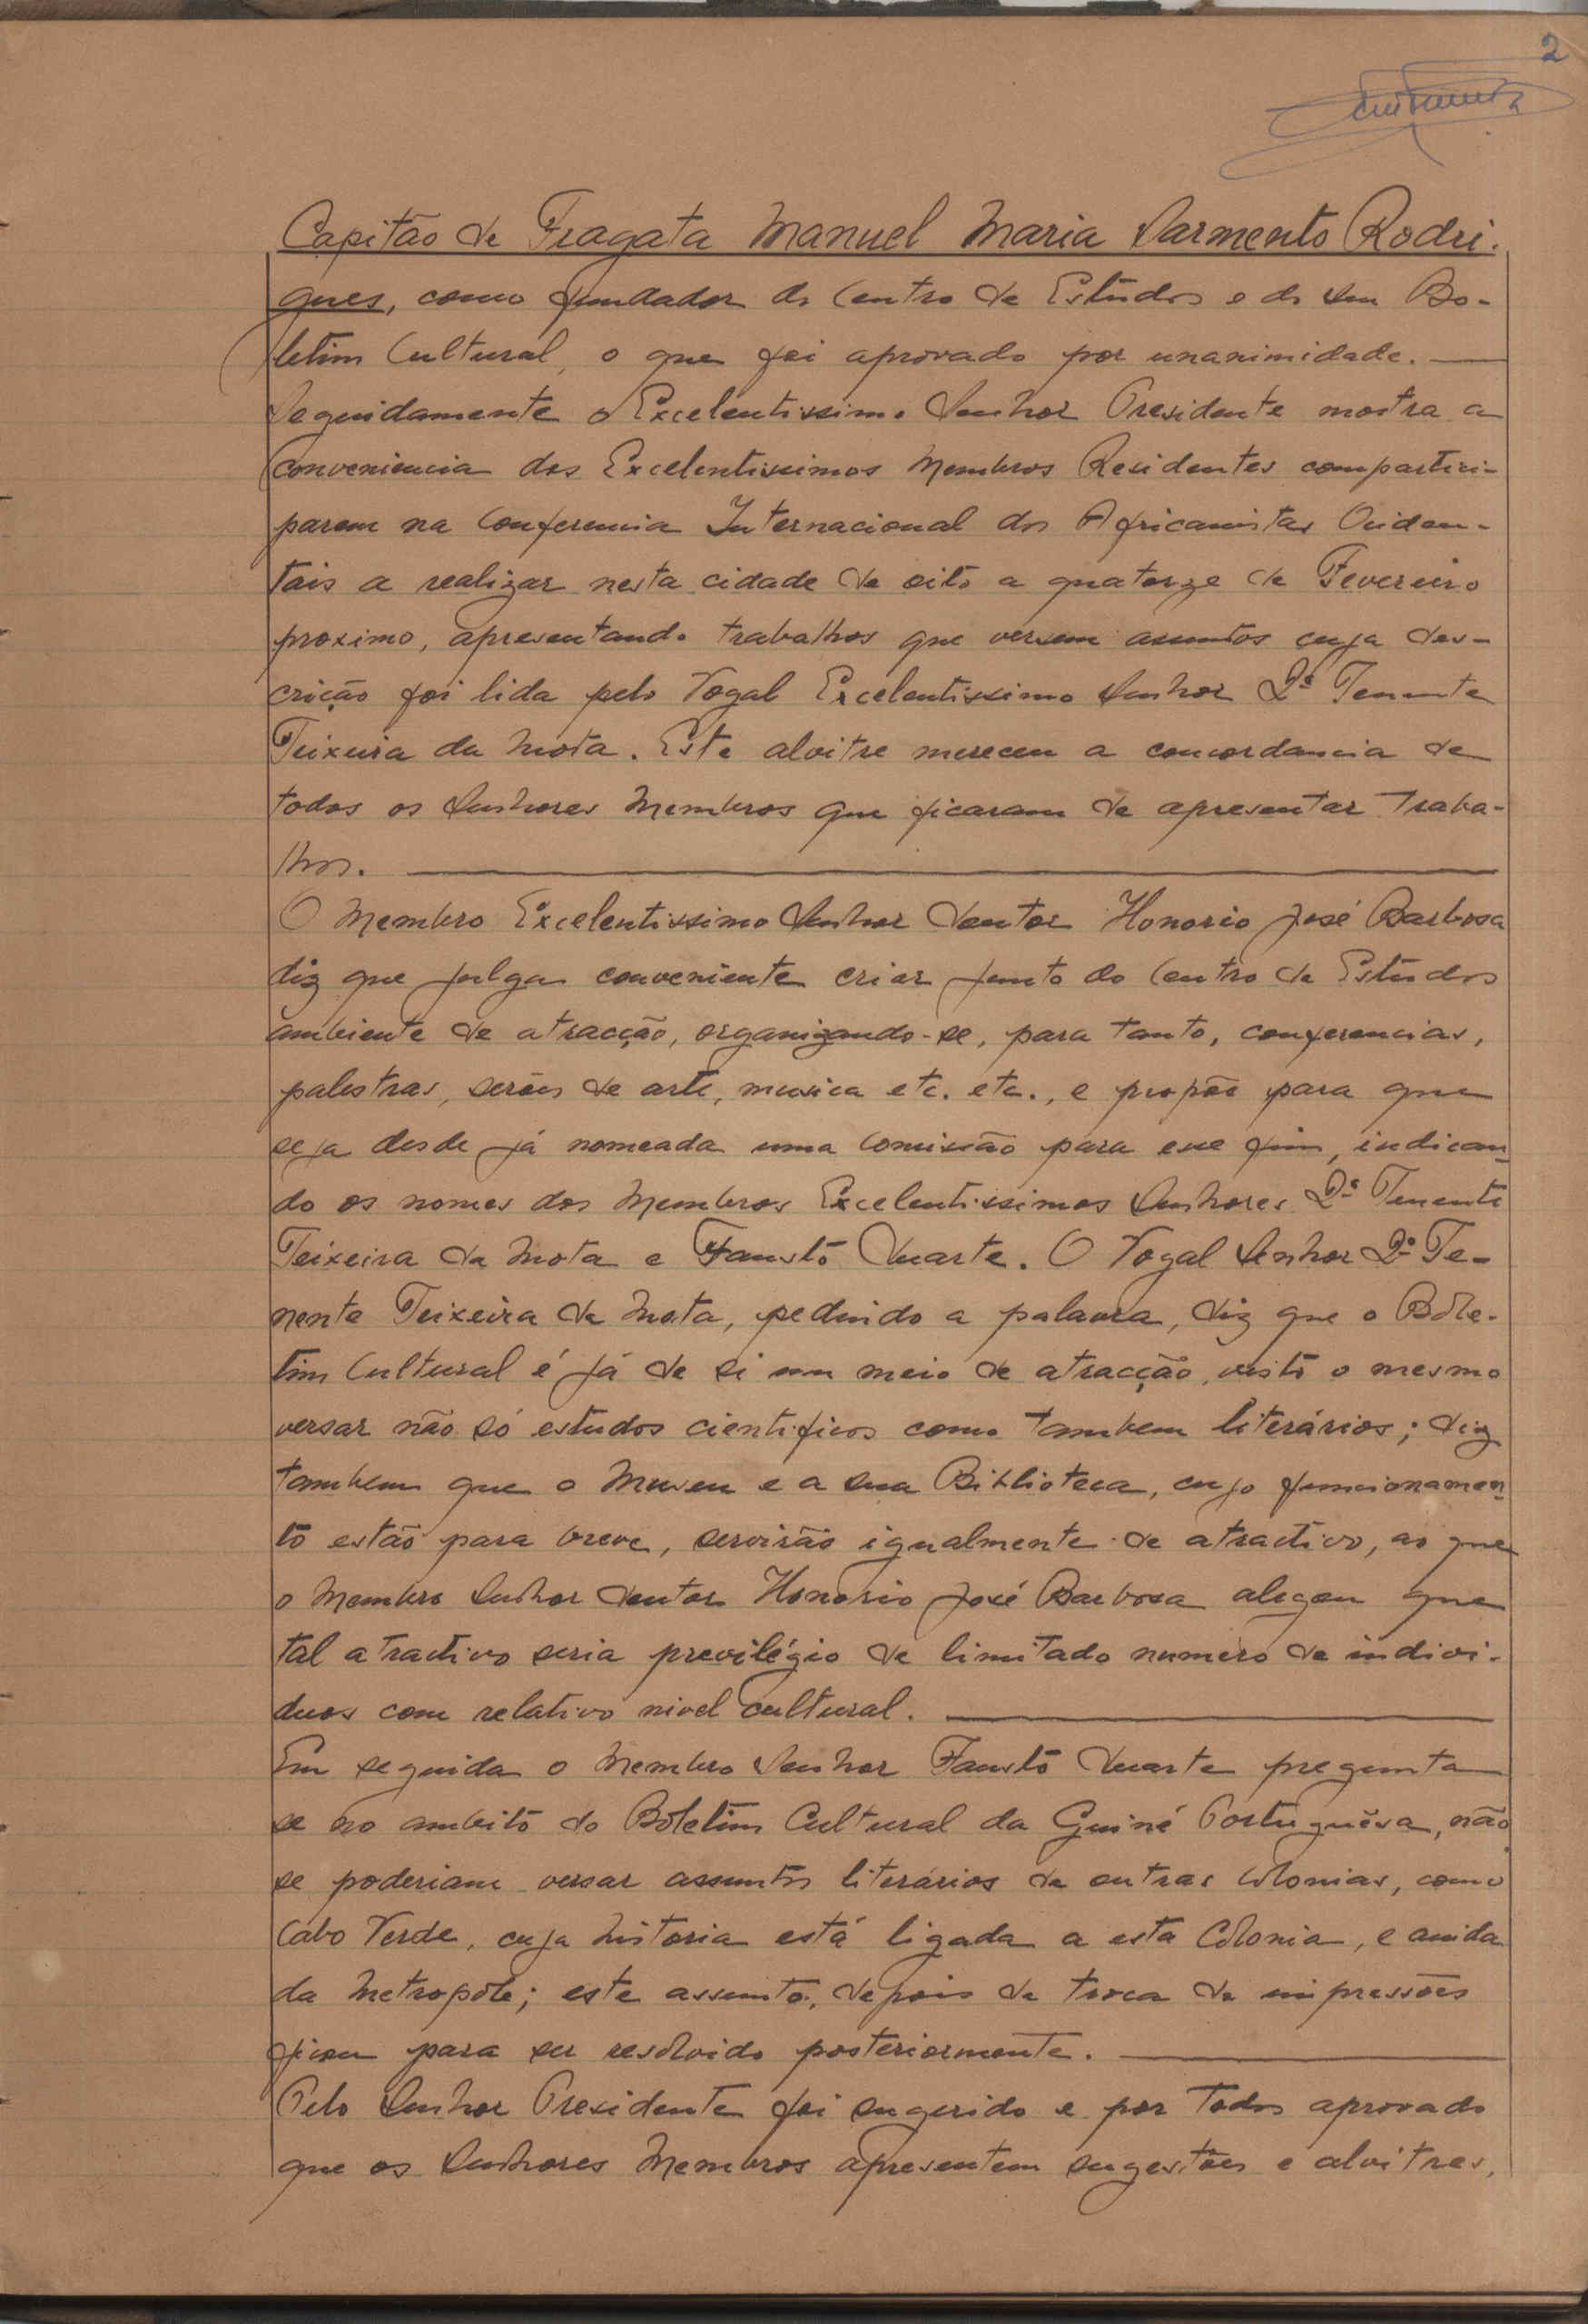 2
Capitão de Fragata Manuel Maria Sarmento Rodri-
gues, como fundador do Centro de Estudos e do seu Bo-
letim Cultural, o que foi aprovado por unanimidade.
Seguidamente o Excelentissimo Senhor Presidente mostra a
conveniencia dos Excelentissimos Membros Residentes compartici-
parem na Conferencia Internacional dos Africanistas Ociden-
tais a realizar nesta cidade de oito a quatorze de Fevereiro
proximo, apresentando trabalhos que versem assuntos cuja des-
crição foi lida pelo Vogal Excelentissimo Senhor 2º Tenente
Teixeira da Mota. Este alvitre mereceu a concordancia de
todos os Senhores Membros que ficaram de apresentar traba-
lhos.
O Membro Excelentissimo Senhor Doutor Honorio José Barbosa
diz que julga conveniente criar junto do Centro de Estudos
ambiente de atracção, organizando-se, para tanto, conferencias,
palestras, serões de arte, musica etc. etc., e propõe para que
seja desde já nomeada uma comissão para esse fim, indican-
do os nomes dos Membros Excelentissimos Senhores 2º Tenente
Teixeira da Mota e Fausto Duarte. O Vogal Senhor 2º Te-
nente Teixeira da Mota, pedindo a palavra, diz que o Bole-
tim Cultural é já de si um meio de atracção, visto o mesmo
versar não só estudos cientificos como tambem literários; diz
tambem que o Museu e a sua Biblioteca, cujo funcionamen-
to estão para breve, servirão igualmente de atractivo, ao que
o Membro Senhor Doutor Honorio José Barbosa alegou que
tal atractivo seria previlégio de limitado numero de indivi-
duos com relativo nivel cultural.
Em seguida o Membro Senhor Fausto Duarte pregunta
se no ambito do Boletim Cultural da Guiné Portuguêsa, não
se poderiam versar assuntos literários de outras Colonias, como
Cabo Verde, cuja historia está ligada a esta Colonia, e ainda
da Metropole; este assunto, depois de troca de impressões
ficou para ser resolvido posteriormente.
Pelo Senhor Presidente foi sugerido e por todos aprovado
que os Senhores Membros apresentem sugestões e alvitres,